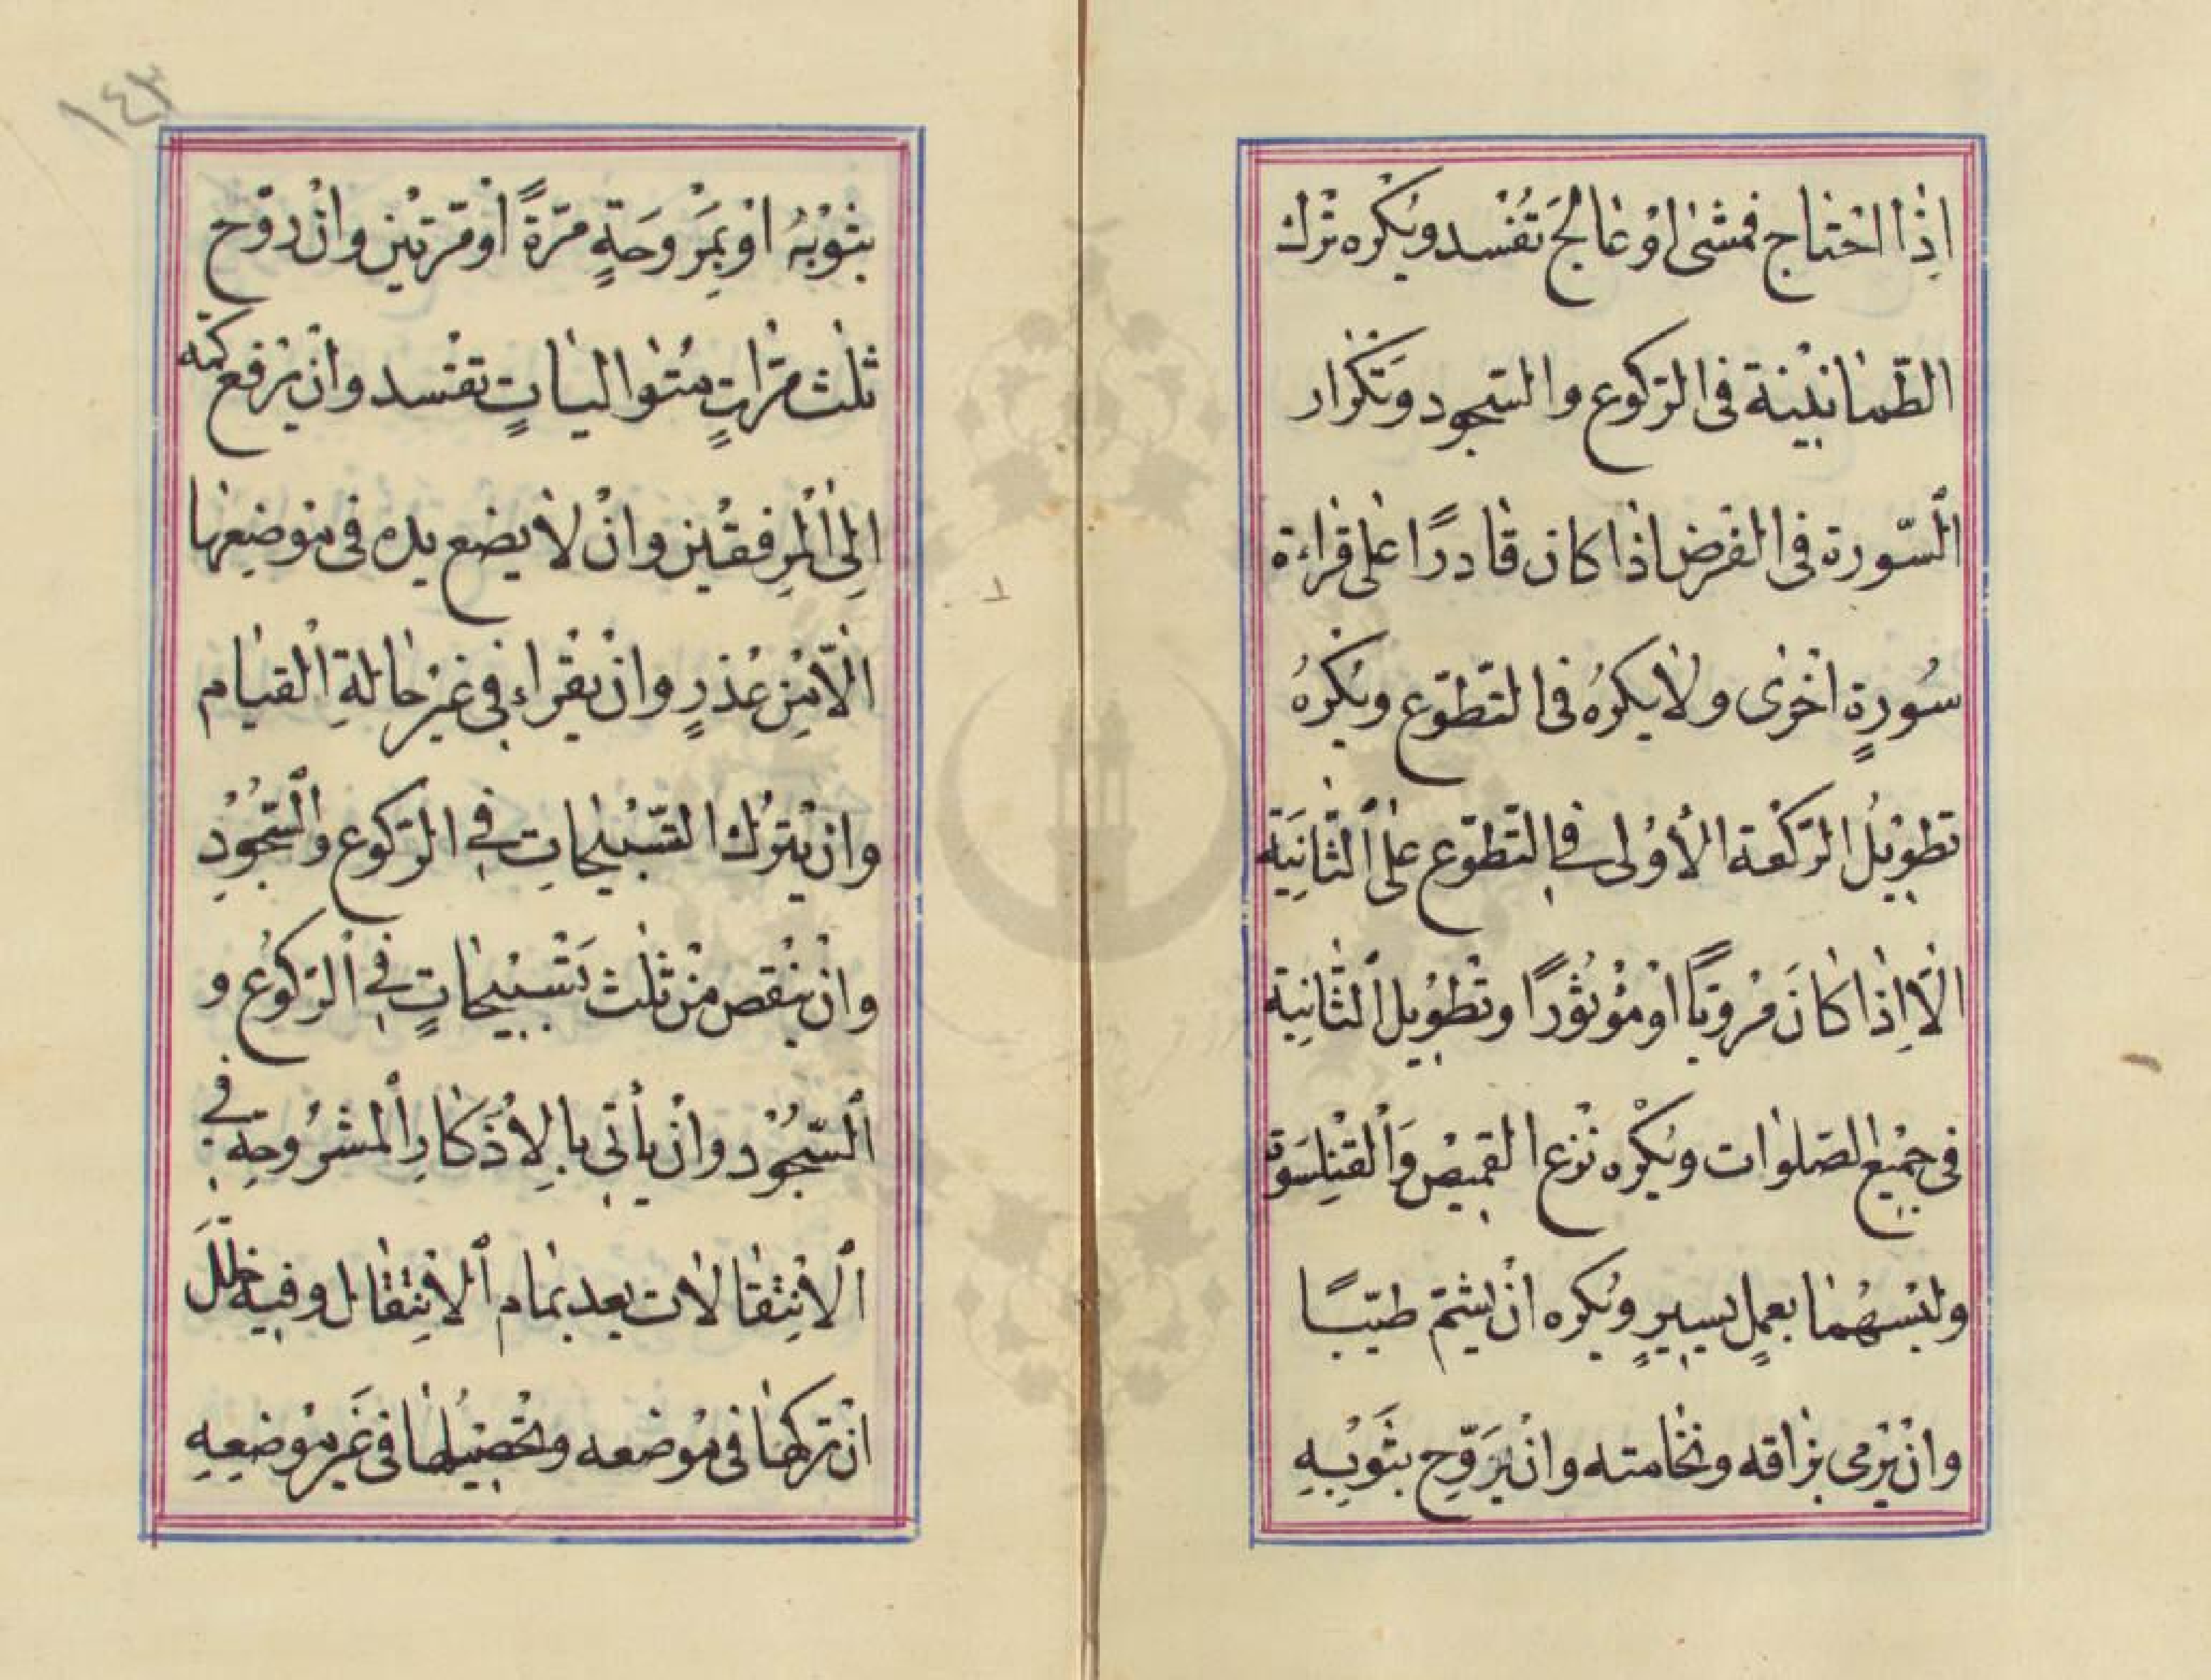 اذا احتاج فمشى او عالج تفسد ويكره ترك
الطّمانينة فى الرّكوع والسّجود وتكرار
السّورة فى الفرض اذا كان قادرًا على قراءة
سُورةٍ اخرى ولا يكرهُ فى التّطوّع ويكرهُ
تطويلُ الرّكعة الأولى فى التّطوّع على الثّانيَة
الّا اِذا كانَ مرويًّا او مؤثورًا وتطويل الثّانية
فى جميع الصّلوات ويكره نزع القميص وَالقلنسوة
ولبسهُما بعملٍ يسيرٍ ويُكره ان يشمّ طيبًا
وان يرمى بزاقه ونخامته وان يَروّح بثوبِهِ
بثوبُهُ او بِمَروَحَةٍ مرّةً او مرّتين وان روّح
ثلث مرّاتٍ متواليات تفسد وان يرفع كمّه
الِى المرفقين وان لا يضع يده فى موضعها
الّا مِن عذرٍ وان يقراء فى غير حالةِ القيام
وان يترُك التّسبيحات فى الرّكوع والسّجُودِ
وان ينقص من ثلث تَسبيحاتٍ فى الرّكوع و
السّجُود وان يأتى بالاِذكارِ المشرُوحةِ فى
الانتقالات بعد تمام الانتقال وفيه خلل
ان تركها فى موضعه وتحصيلُها فى غير موضعِهِ
١٤٣